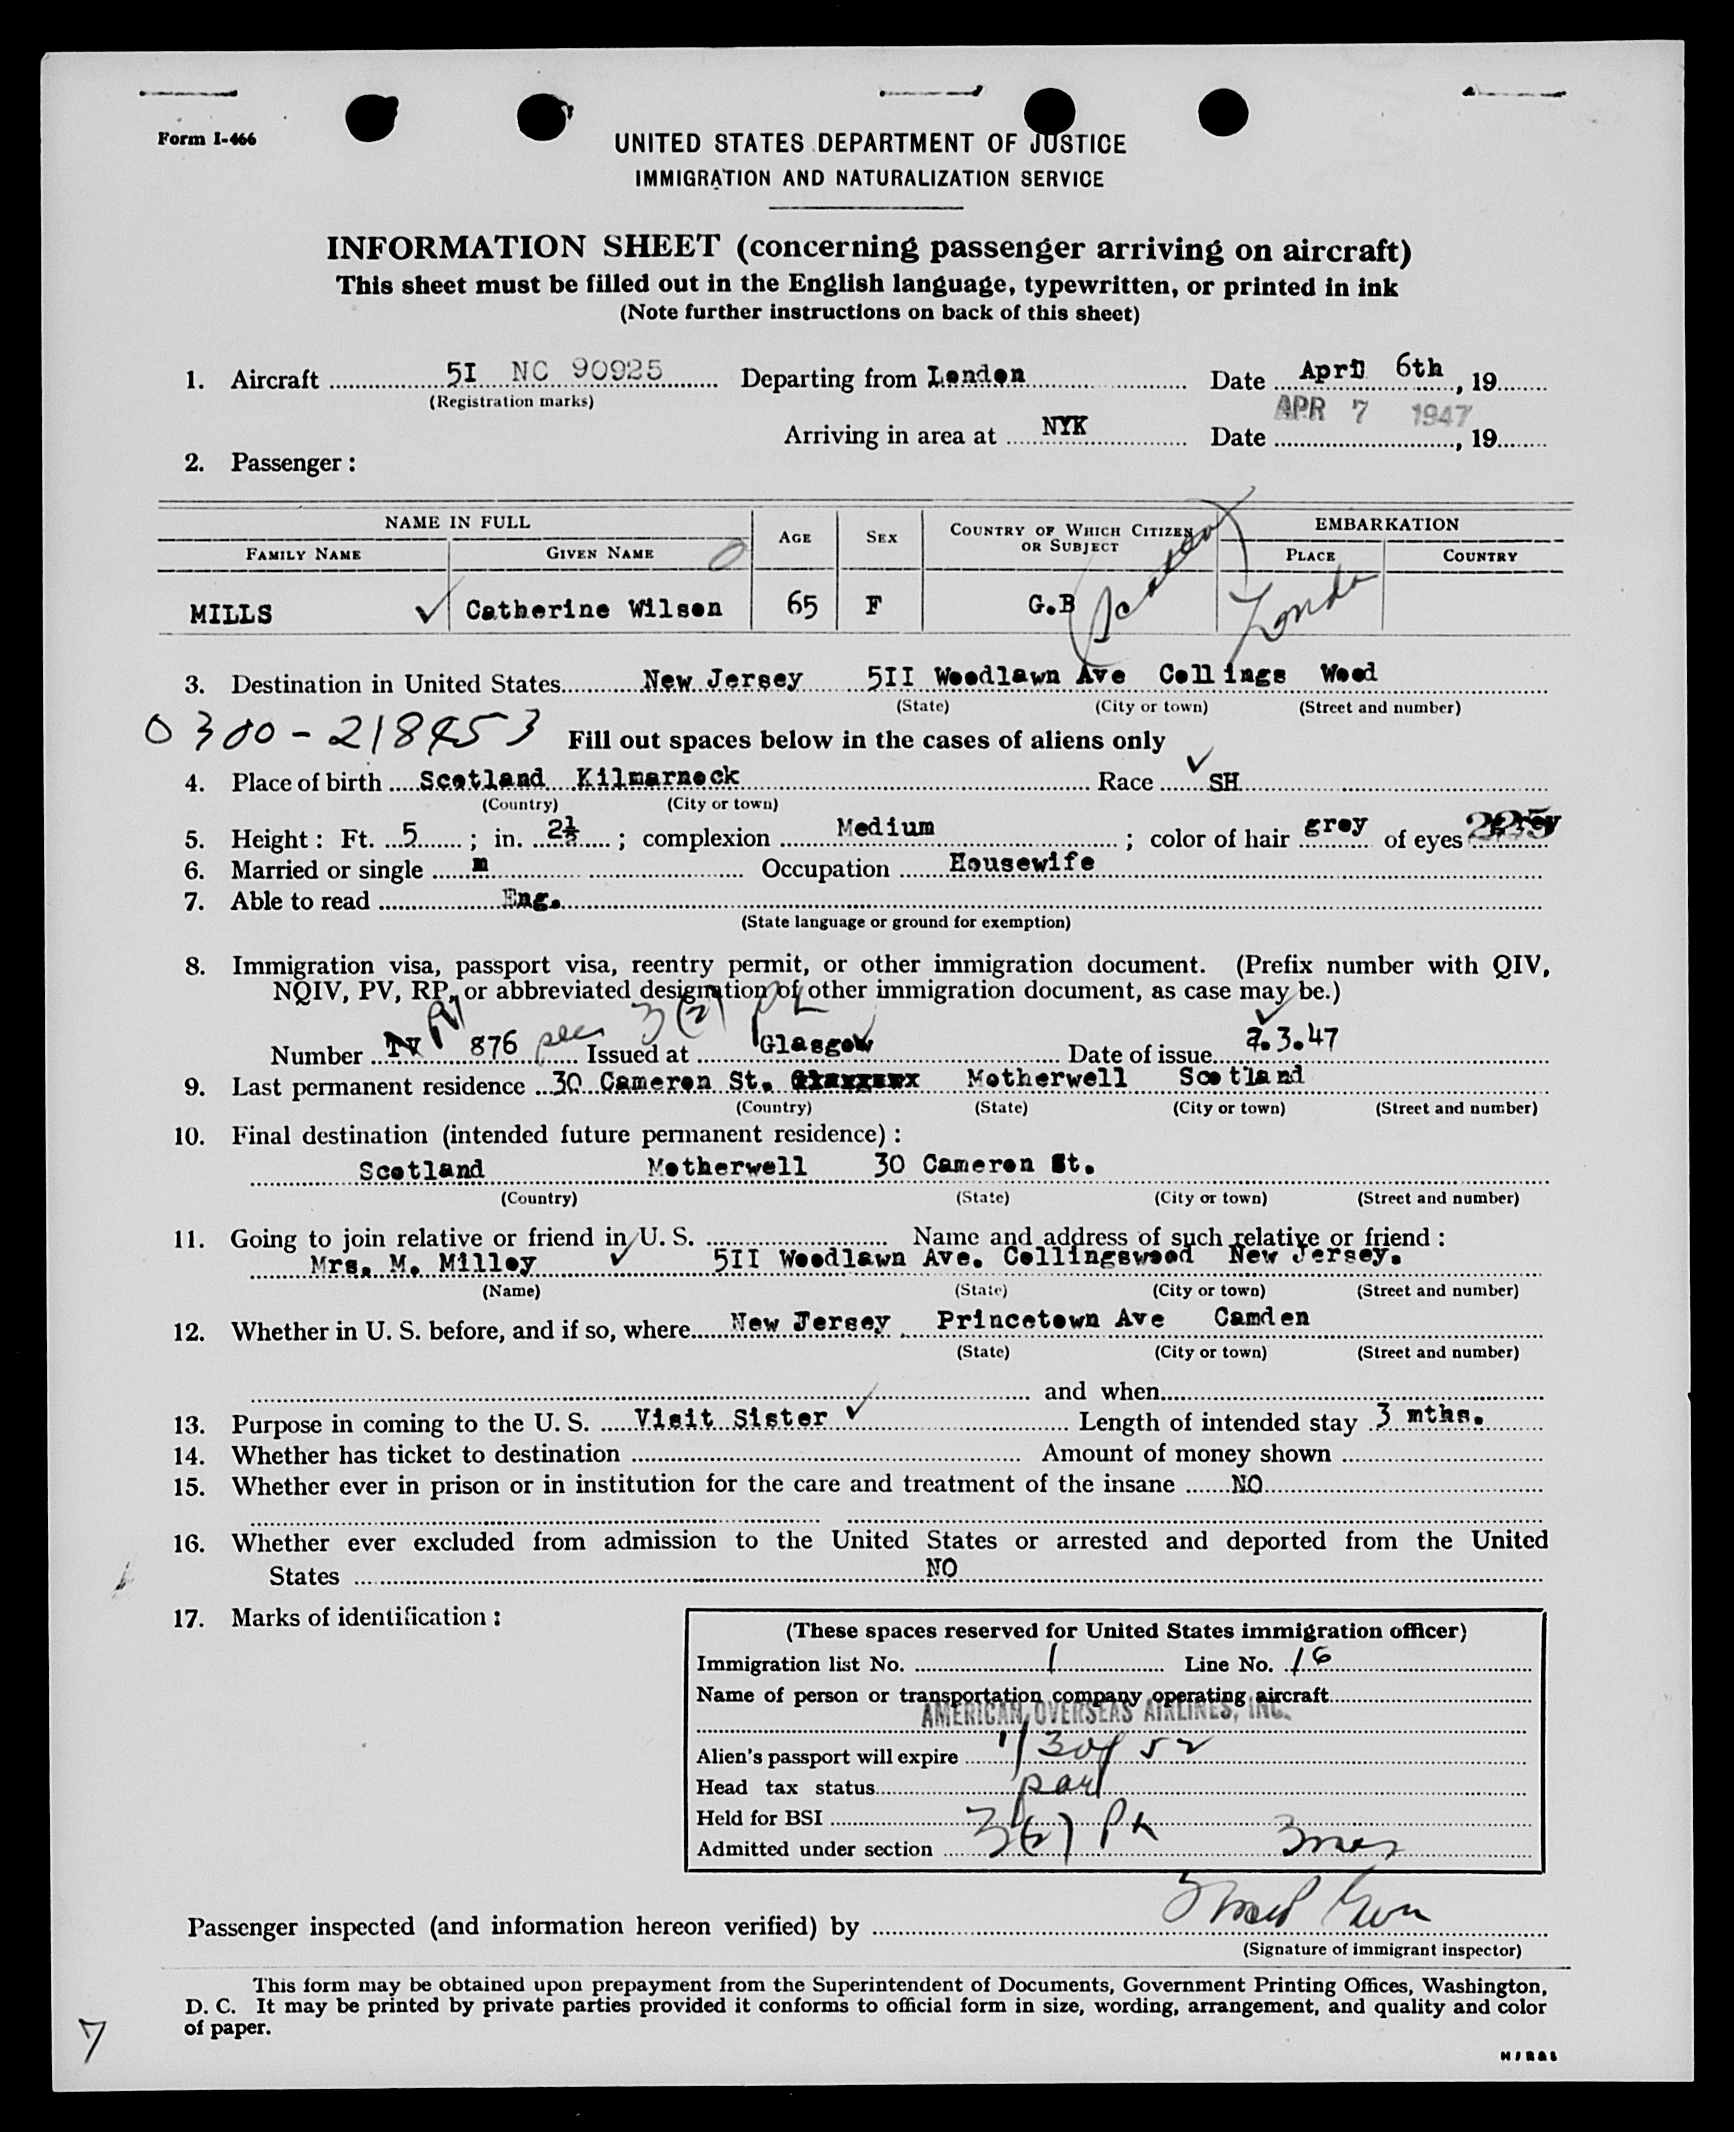 Form I-466
UNITED STATES DEPARTMENT OF JUSTICE
IMMIGRATION AND NATURALIZATION SERVICE
INFORMATION SHEET (concerning passenger arriving on aircraft)
This sheet must be filled out in the English language, typewritten, or printed in ink
(Note further instructions on back of this sheet)
1. Aircraft 5I NC 90925 Departing from London Date April 6th, 19
(Registration marks)
APR 7 1947
Arriving in area at NYK Date , 19
2. Passenger:
NAME IN FULL AGE SEX COUNTRY OF WHICH CITIZEN OR SUBJECT EMBARKATION
FAMILY NAME GIVEN NAME PLACE COUNTRY
MILLS ✓ Catherine Wilson 65 F G.B (Scotland) London
3. Destination in United States New Jersey 5II Woodlawn Ave Collings Wood
(State) (City or town) (Street and number)
0300-218453 Fill out spaces below in the cases of aliens only
4. Place of birth Scotland Kilmarnock Race ✓ SH
(Country) (City or town)
5. Height: Ft. 5; in. 2½; complexion Medium; color of hair grey of eyes grey 225
6. Married or single m Occupation Housewife
7. Able to read Eng.
(State language or ground for exemption)
8. Immigration visa, passport visa, reentry permit, or other immigration document. (Prefix number with QIV,
NQIV, PV, RP, or abbreviated designation of other immigration document, as case may be.)
3(2)
Number PV 876 Issued at Glasgow Date of issue 7.3.47
9. Last permanent residence 30 Cameron St. Motherwell Scotland
(Country) (State) (City or town) (Street and number)
10. Final destination (intended future permanent residence):
Scotland Motherwell 30 Cameron St.
(Country) (State) (City or town) (Street and number)
11. Going to join relative or friend in U. S. Name and address of such relative or friend:
Mrs. M. Milloy ✓ 5II Woodlawn Ave. Collingswood New Jersey.
(Name) (State) (City or town) (Street and number)
12. Whether in U. S. before, and if so, where New Jersey Princetown Ave Camden
(State) (City or town) (Street and number)
and when
13. Purpose in coming to the U. S. Visit Sister ✓ Length of intended stay 3 mths.
14. Whether has ticket to destination Amount of money shown
15. Whether ever in prison or in institution for the care and treatment of the insane NO
16. Whether ever excluded from admission to the United States or arrested and deported from the United
States NO
17. Marks of identification:
(These spaces reserved for United States immigration officer)
Immigration list No. 1 Line No. 16
Name of person or transportation company operating aircraft
AMERICAN OVERSEAS AIRLINES, INC.
Alien's passport will expire 1/30/52
Head tax status
Held for BSI
Admitted under section 3(2) 3 mos
Passenger inspected (and information hereon verified) by
(Signature of immigrant inspector)
This form may be obtained upon prepayment from the Superintendent of Documents, Government Printing Offices, Washington,
D. C. It may be printed by private parties provided it conforms to official form in size, wording, arrangement, and quality and color
of paper.
7